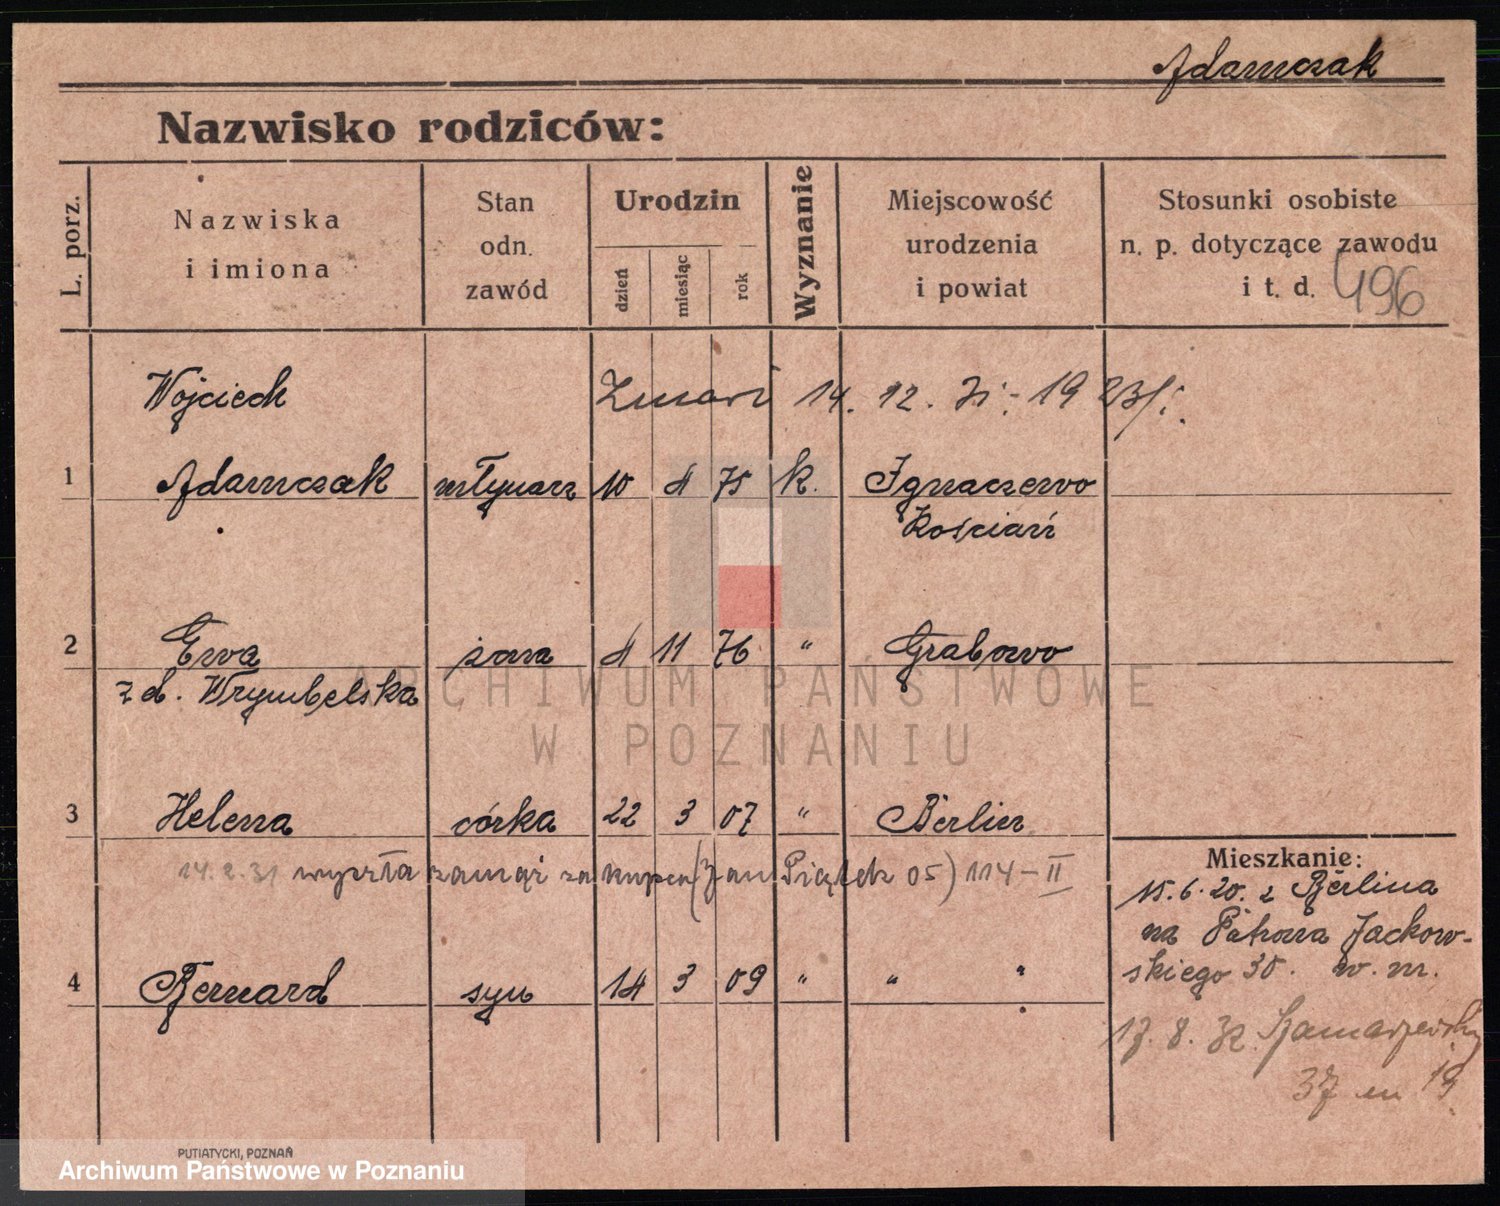 Adamczak
Nazwisko rodziców:
L. porz.
Nazwiska
i imiona
Stan
odn.
zawód
Urodzin
dzień
miesiąc
rok
Wyznanie
Miejscowość
urodzenia
i powiat
Stosunki osobiste
n. p. dotyczące zawodu
i t. d.
496
Wojciech Zmarł 14. 12. 1923
1 Adamczak młynarz 10 4 75 k. Ignacewo
Kościań
2 Ewa żona 4 11 76 " Grabowo
z d. Wrymbelska
ARCHIWUM PAŃSTWOWE
W POZNANIU
3 Helena córka 22 3 07 " Berlin
14.2.31 wyszła zamąż za kupca (Jan Piątek 05) 114-II
4 Bernard syn 14 3 09 " " "
Mieszkanie:
15.6.20. z Berlina
na Patrona Jackow-
skiego 30. w. m.
17. 8. 32 Szamarzewsky
37 m 19
PUTIATYCKI, POZNAŃ
Archiwum Państwowe w Poznaniu